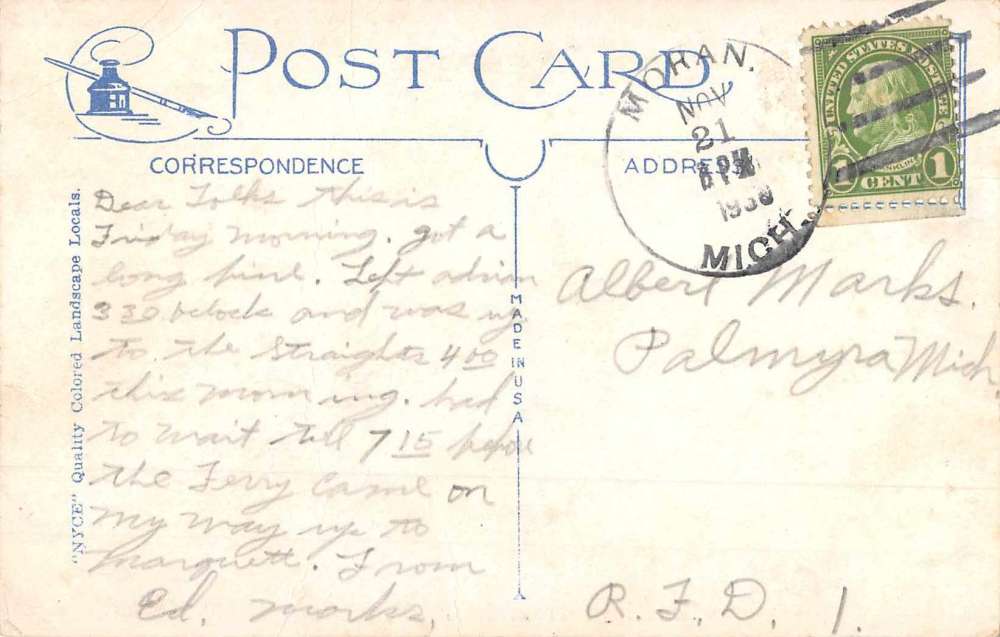 POST CARD
CORRESPONDENCE
ADDRESS
MORAN,
NOV
21
PM
MICH.
UNITED STATES POSTAGE
1 CENT 1
Dear Folks this is
Friday morning. got a
long hine. Left adrian
3 30 oclock and was up
to the Straights 4 00
this morning. had
to wait till 7 15 before
the Ferry came on
my way up to
Marquett. From
Ed. Marks,
Albert Marks.
Palmyra Mich.
R. F. D. 1.
MADE IN USA
"NYCE" Quality Colored Landscape Locals.